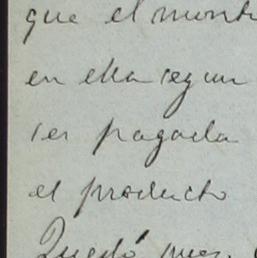 que el monto
en ella segun
ser pagada
el producto
Quedó pues,